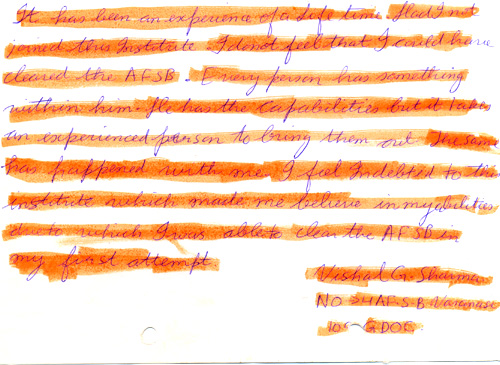 It has been an experience of a Life time. Had I not
joined this Institute I do not feel that I could have
cleared the AFSB. Every person has something
within him. He has the capabilities but it takes
an experienced person to bring them out. The same
has happened with me. I feel Indebted to the
institute which made me believe in my abilities
due to which I was able to clear the AFSB in
my first attempt
Vishal G. Sharma
NO 2 AFSB
105 GDOC